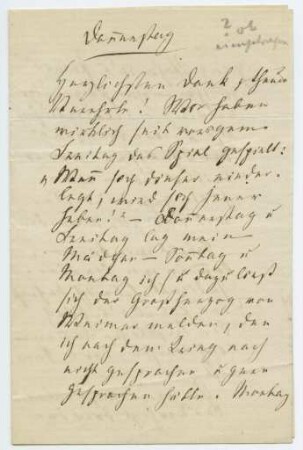 Donnerstag
Herzlichsten Dank, theure
Verehrte! Wir haben
wirklich seit vorigem
Freitag das Spiel gespielt:
„Wenn sich dieser nieder-
legt, wird sich jener
heben!" – Donnerstag u
Freitag lag mein
Mädchen – Sonntag u
Montag ich (u dazu ließ
sich der Großherzog von
Weimar melden, den
ich nach dem Krieg noch
nicht gesprochen u gern
gesprochen hätte. Montag